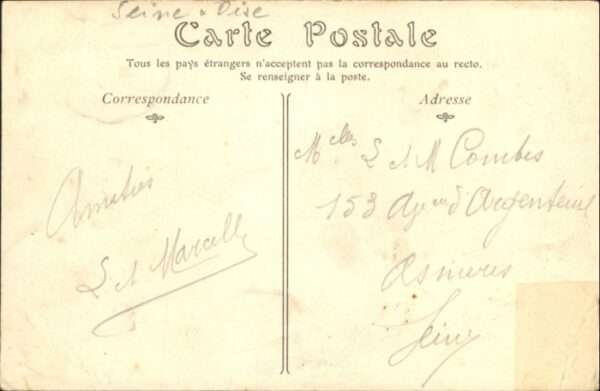 Seine & Oise
Carte Postale
Tous les pays étrangers n'acceptent pas la correspondance au recto.
Se renseigner à la poste.
Correspondance
Amitiés
L et Marcelle
Adresse
Melles L et M Combes
153 Avenue d'Argenteuil
Asnieres
Seine